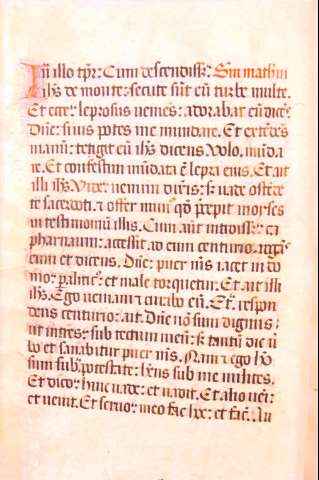 In illo tpr: Cum descendisset Scdm mathm
ihs de monte: secute sut eu turbe multe.
Et ecce leprosus veniens: adorabat eu dices
Dne: si vis potes me mundare. Et extedes
manu: tetigit eu ihs dicens Volo. muda
re. Et confestim mudata e lepra eius. Et ait
illi ihs Vide: nemini dixeris: s vade oste
te sacerdoti: et offer mun qd precepit moyses
in testimoniu illis. Cum aut introisset ca
pharnaum: accessit ad eum centurio: rogas
eum et dicens. Dne: puer ms iacet in do
mo: paliticus: et male torquetur. Et ait illi
ihs. Ego veniam et curabo eu. Et respon
dens centurio: ait. Dne no sum dignus:
ut intres: sub tectum meu: s tantu dic v
bo et sanabitur puer ms. Nam et ego ho
sum sub potestate: hns sub me milites.
Et dico: huic vade: et vadit. Et alio veni:
et venit. Et servo: meo fac hoc: et facit. Au